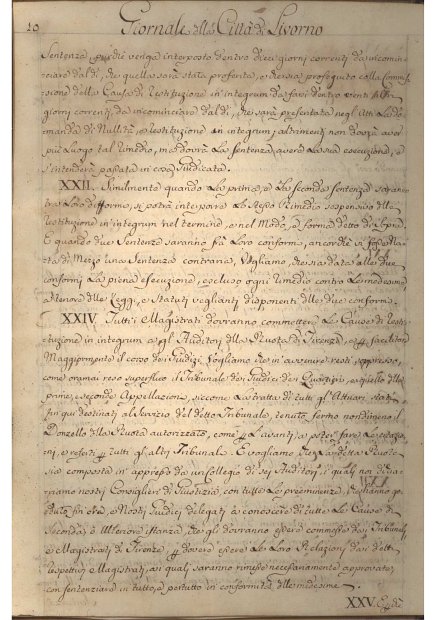 20 Giornale della Città di Livorno
Sentenza purchè venga interposto dentro dieci giorni correnti da incomin-
ciare dal dì, che quella sarà stata proferita, e dessa proseguito colla Commis-
sione della Causa di Restituzione in integrum da farsi dentro venti altri
giorni correnti, da incominciare dal dì, che sarà presentata negli Atti la Do-
manda di Nullità, o restituzione in integrum; altrimenti non dovrà aver
più luogo tal rimedio, ma dovrà la Sentenza avere la sua esecuzione, e
s'intenderà passata in cosa giudicata.
XXII. Similmente quando la prima, e la seconda sentenza saranno
tra loro difformi, si potrà interporre lo stesso rimedio sospensivo della
restituzione in integrum nel termine, e nel modo, e forma detto di sopra.
E quando due Sentenze saranno fra loro conformi, ancorchè vi fosse sta-
ta di mezzo una Sentenza contraria, Vogliamo, che sia data alle due
conformi la piena esecuzione, escluso ogni rimedio contro le medesime
a tenore delle Leggi, e Statuti veglianti disponenti delle due conformi.
XXIV. Tutti i Magistrati dovranno commettere le Cause di Resti-
tuzione in integrum agl'Auditori della Ruota di Firenze, e per facilitar
Maggiormente il corso dei Giudizi, Vogliamo che in avvenire resti soppresso,
come oramai reso superfluo il Tribunale dei Giudici de Quartieri, e quello delle
prime, e seconde Appellazioni, siccome la tratta di tutti gl'Attuari, stati
fin qui destinati al Servizio del detto Tribunale, tenuto fermo nondimeno il
Donzello della Ruota autorizzato, come per l'avanti a poter fare le citazio-
ni, e referti per tutti gl'altri Tribunali. E vogliamo che la detta Ruota
sia composta in appresso da un Collegio di sei Auditori, i quali noi dichia-
riamo nostri Consiglieri di Giustizia, con tutte le preeminenze, che hanno go-
duto fin ora, e Nostri Giudici delegati à conoscere di tutte le Cause di
Seconda, e Ulteriore istanza, che gli dovranno essere commesse da Tribunali,
e Magistrati di Firenze, per dovere essere le Loro Relazioni dai detti
respettivi Magistrati, ai quali saranno rimesse necessariamente approvate,
con sentenziare in tutto, e per tutto in conformità delle medesime.
XXV.